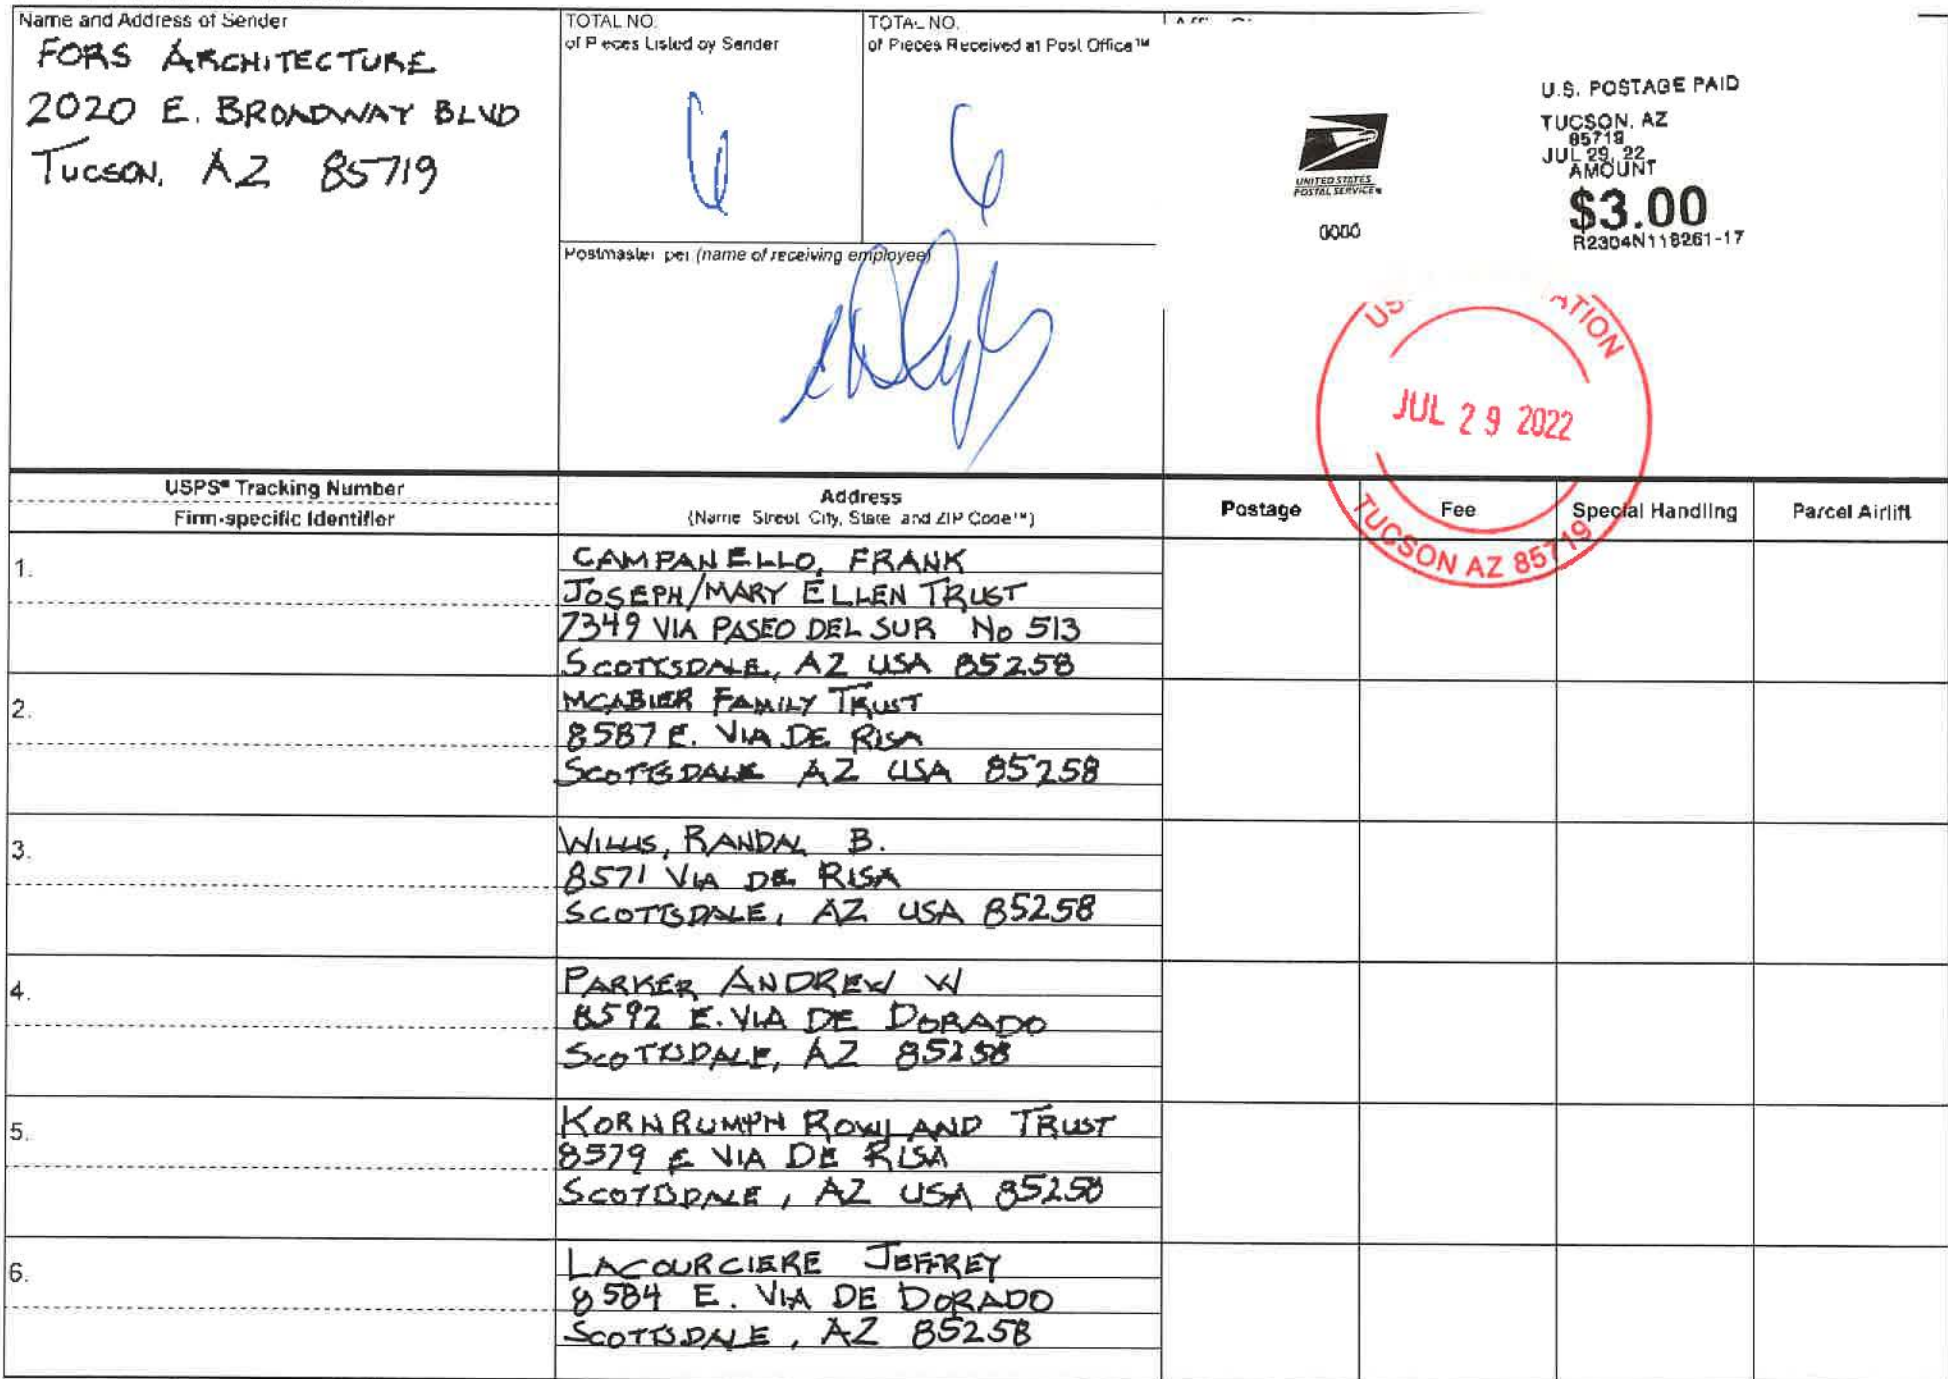 Name and Address of Sender
FORS ARCHITECTURE
2020 E. BROADWAY BLVD
TUCSON, AZ 85719
TOTAL NO.
of Pieces Listed by Sender
6
TOTAL NO.
of Pieces Received at Post Office™
6
Postmaster, per (name of receiving employee)
UNITED STATES
POSTAL SERVICE®
0000
U.S. POSTAGE PAID
TUCSON, AZ
85719
JUL 29, 22
AMOUNT
$3.00
R2304N118261-17
JUL 29 2022
TUCSON AZ 85719
USPS® Tracking Number
Firm-specific Identifier
Address
(Name, Street, City, State, and ZIP Code™)
Postage
Fee
Special Handling
Parcel Airlift
1.
CAMPANELLO, FRANK
JOSEPH/MARY ELLEN TRUST
7349 VIA PASEO DEL SUR No 513
SCOTTSDALE, AZ USA 85258
2.
MCABIER FAMILY TRUST
8587 E. VIA DE RISA
SCOTTSDALE AZ USA 85258
3.
WILLIS, RANDAL B.
8571 VIA DE RISA
SCOTTSDALE, AZ USA 85258
4.
PARKER ANDREW W
8592 E. VIA DE DORADO
SCOTTSDALE, AZ 85258
5.
KORNRUMPH ROWLAND TRUST
8579 E VIA DE RISA
SCOTTSDALE, AZ USA 85258
6.
LACOURCIERE JEFFREY
8584 E. VIA DE DORADO
SCOTTSDALE, AZ 85258